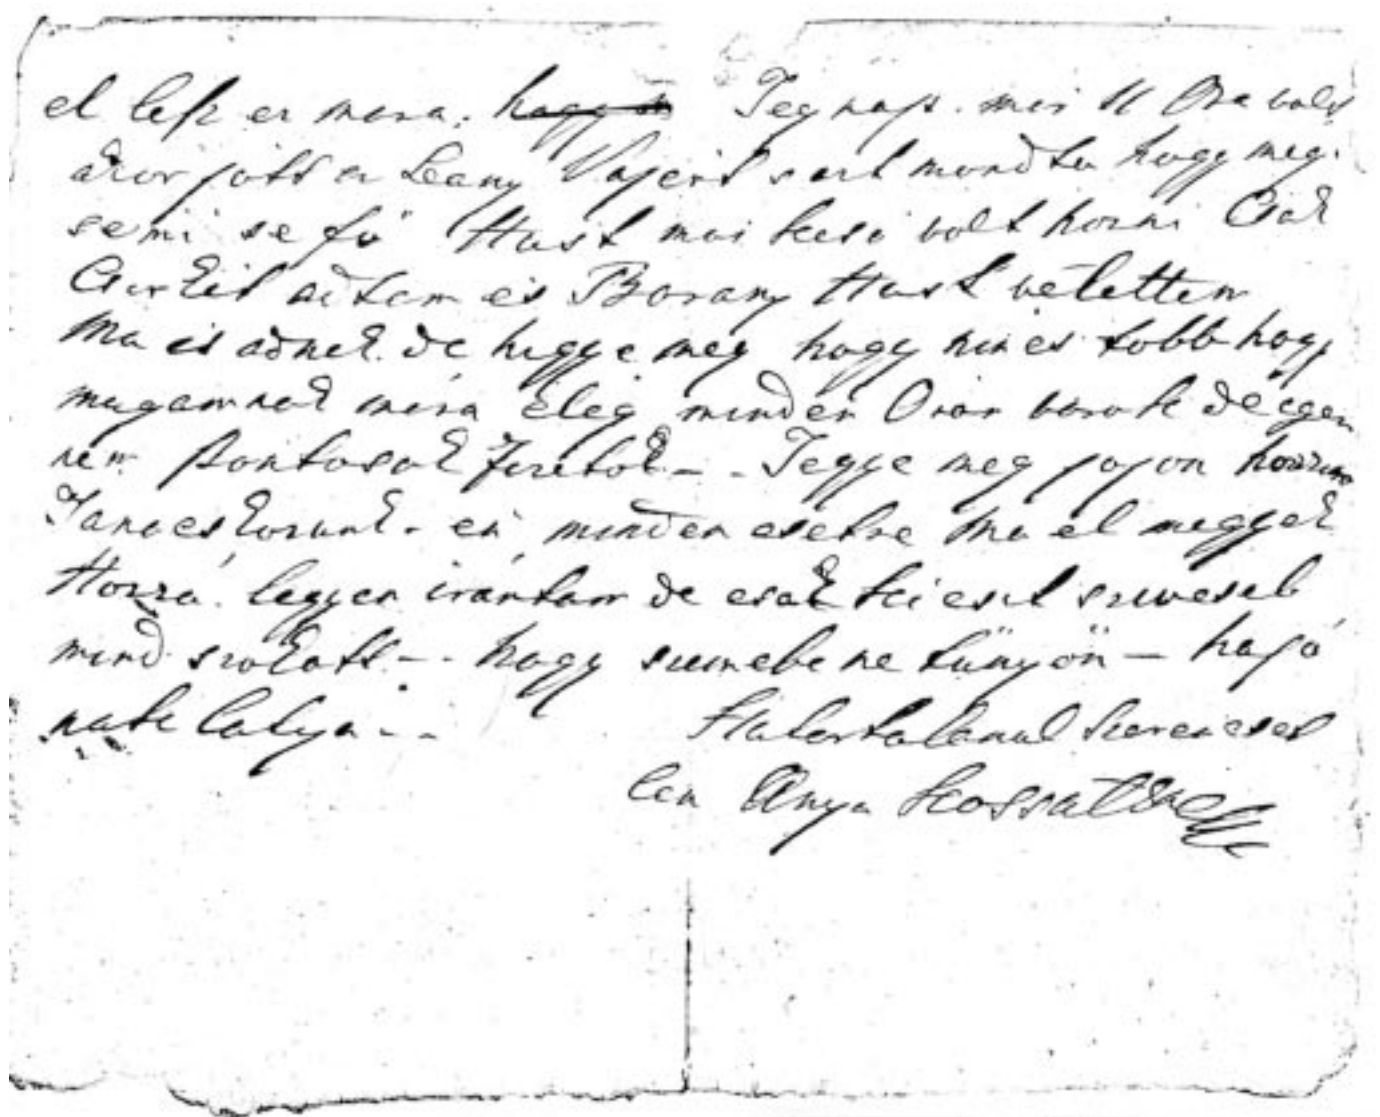 el lesz er mara. Tegnap. mar 11 Ora volt
akor jott a Leany Vajert s art mondta hogy meg.
semi se fö Hust mar kesö volt horni Csak
Csirkét adtam és Barany Hust vétettem
Ma is adnek. de higgye meg hogy nincs tobb hogy
magamnak mára Éleg minden Orar varok de igen
nem pontosak - - Tegye meg jojon horram
Tanacskorunk - én minden esetre ma el megyek
Horzá. legyen irántam de csak sziveseb
mind szokott - - hogy szemebe ne tünyön - hajó
nak latya - -
Határtalanul szerencset
len Anya